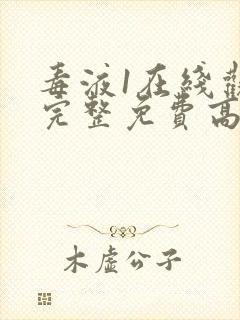 毒液1在线
完整免費高
木虚公子